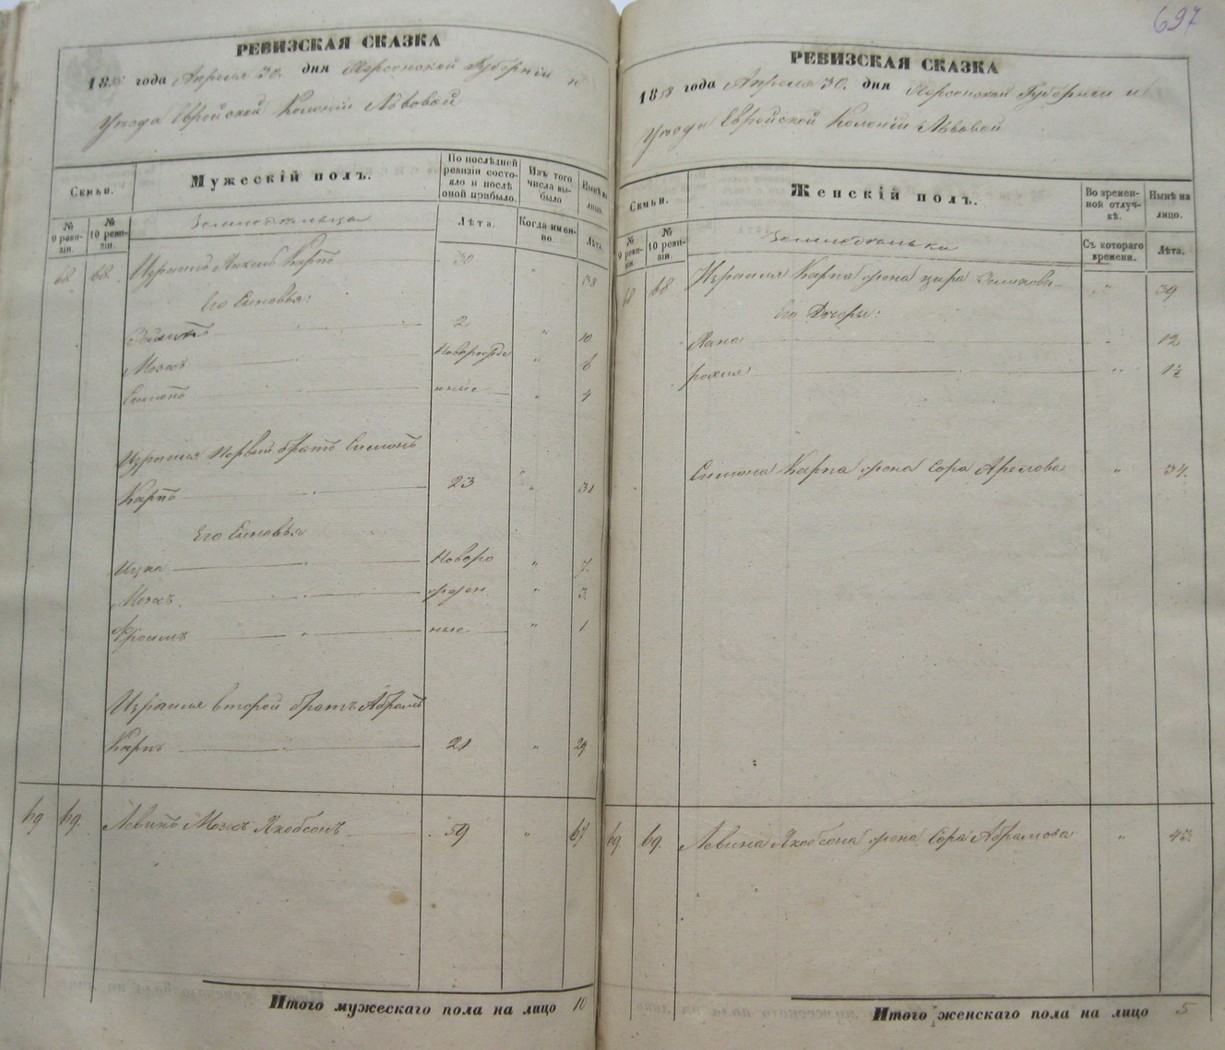 697
РЕВИЗСКАЯ СКАЗКА
185 года Апреля 30. дня Херсонской Губернии и
Уезда Еврейской Колоніи Львовой
Семьи.
Мужескій полъ.
По послѣдней ревизіи состояло и послѣ оной прибыло.
Изъ того числа выбыло
Нынѣ на лицо.
№ 9 ревизіи.
№ 10 ревизіи.
Лѣта.
Когда именно.
Лѣта.
68 68 Карпъ 30 " 38
Его Сыновья:
2 " 10
Мозесъ Новорожде " 6
нные " 4
Израиля Первый братъ Симонъ
Карпъ 23 " 31
Его Сыновья
Ицка Новоро " 7.
Мозесъ жден " 3.
Фроимъ ные " 1
Израиля второй братъ Абрамъ
Карпъ 21 " 29
69 69. Левинъ Якобсонъ 59 " 67
Итого мужескаго пола на лицо 10
РЕВИЗСКАЯ СКАЗКА
1858 года Апреля 30. дня Херсонской Губерніи и
Уезда Еврейской Колоніи Львовой
Семьи.
Женскій полъ.
Во временной отлучкѣ.
Нынѣ на лицо.
№ 9 ревизіи.
№ 10 ревизіи.
Съ котораго времени.
Лѣта.
68 68 Израиля Карпа жена " 39
Его Дочери:
Хана " 12
" 12
Симона Карпа жена Сора " 34.
69 69. Левина Якобсона жена Сора Абрамова " 45.
Итого женскаго пола на лицо 5